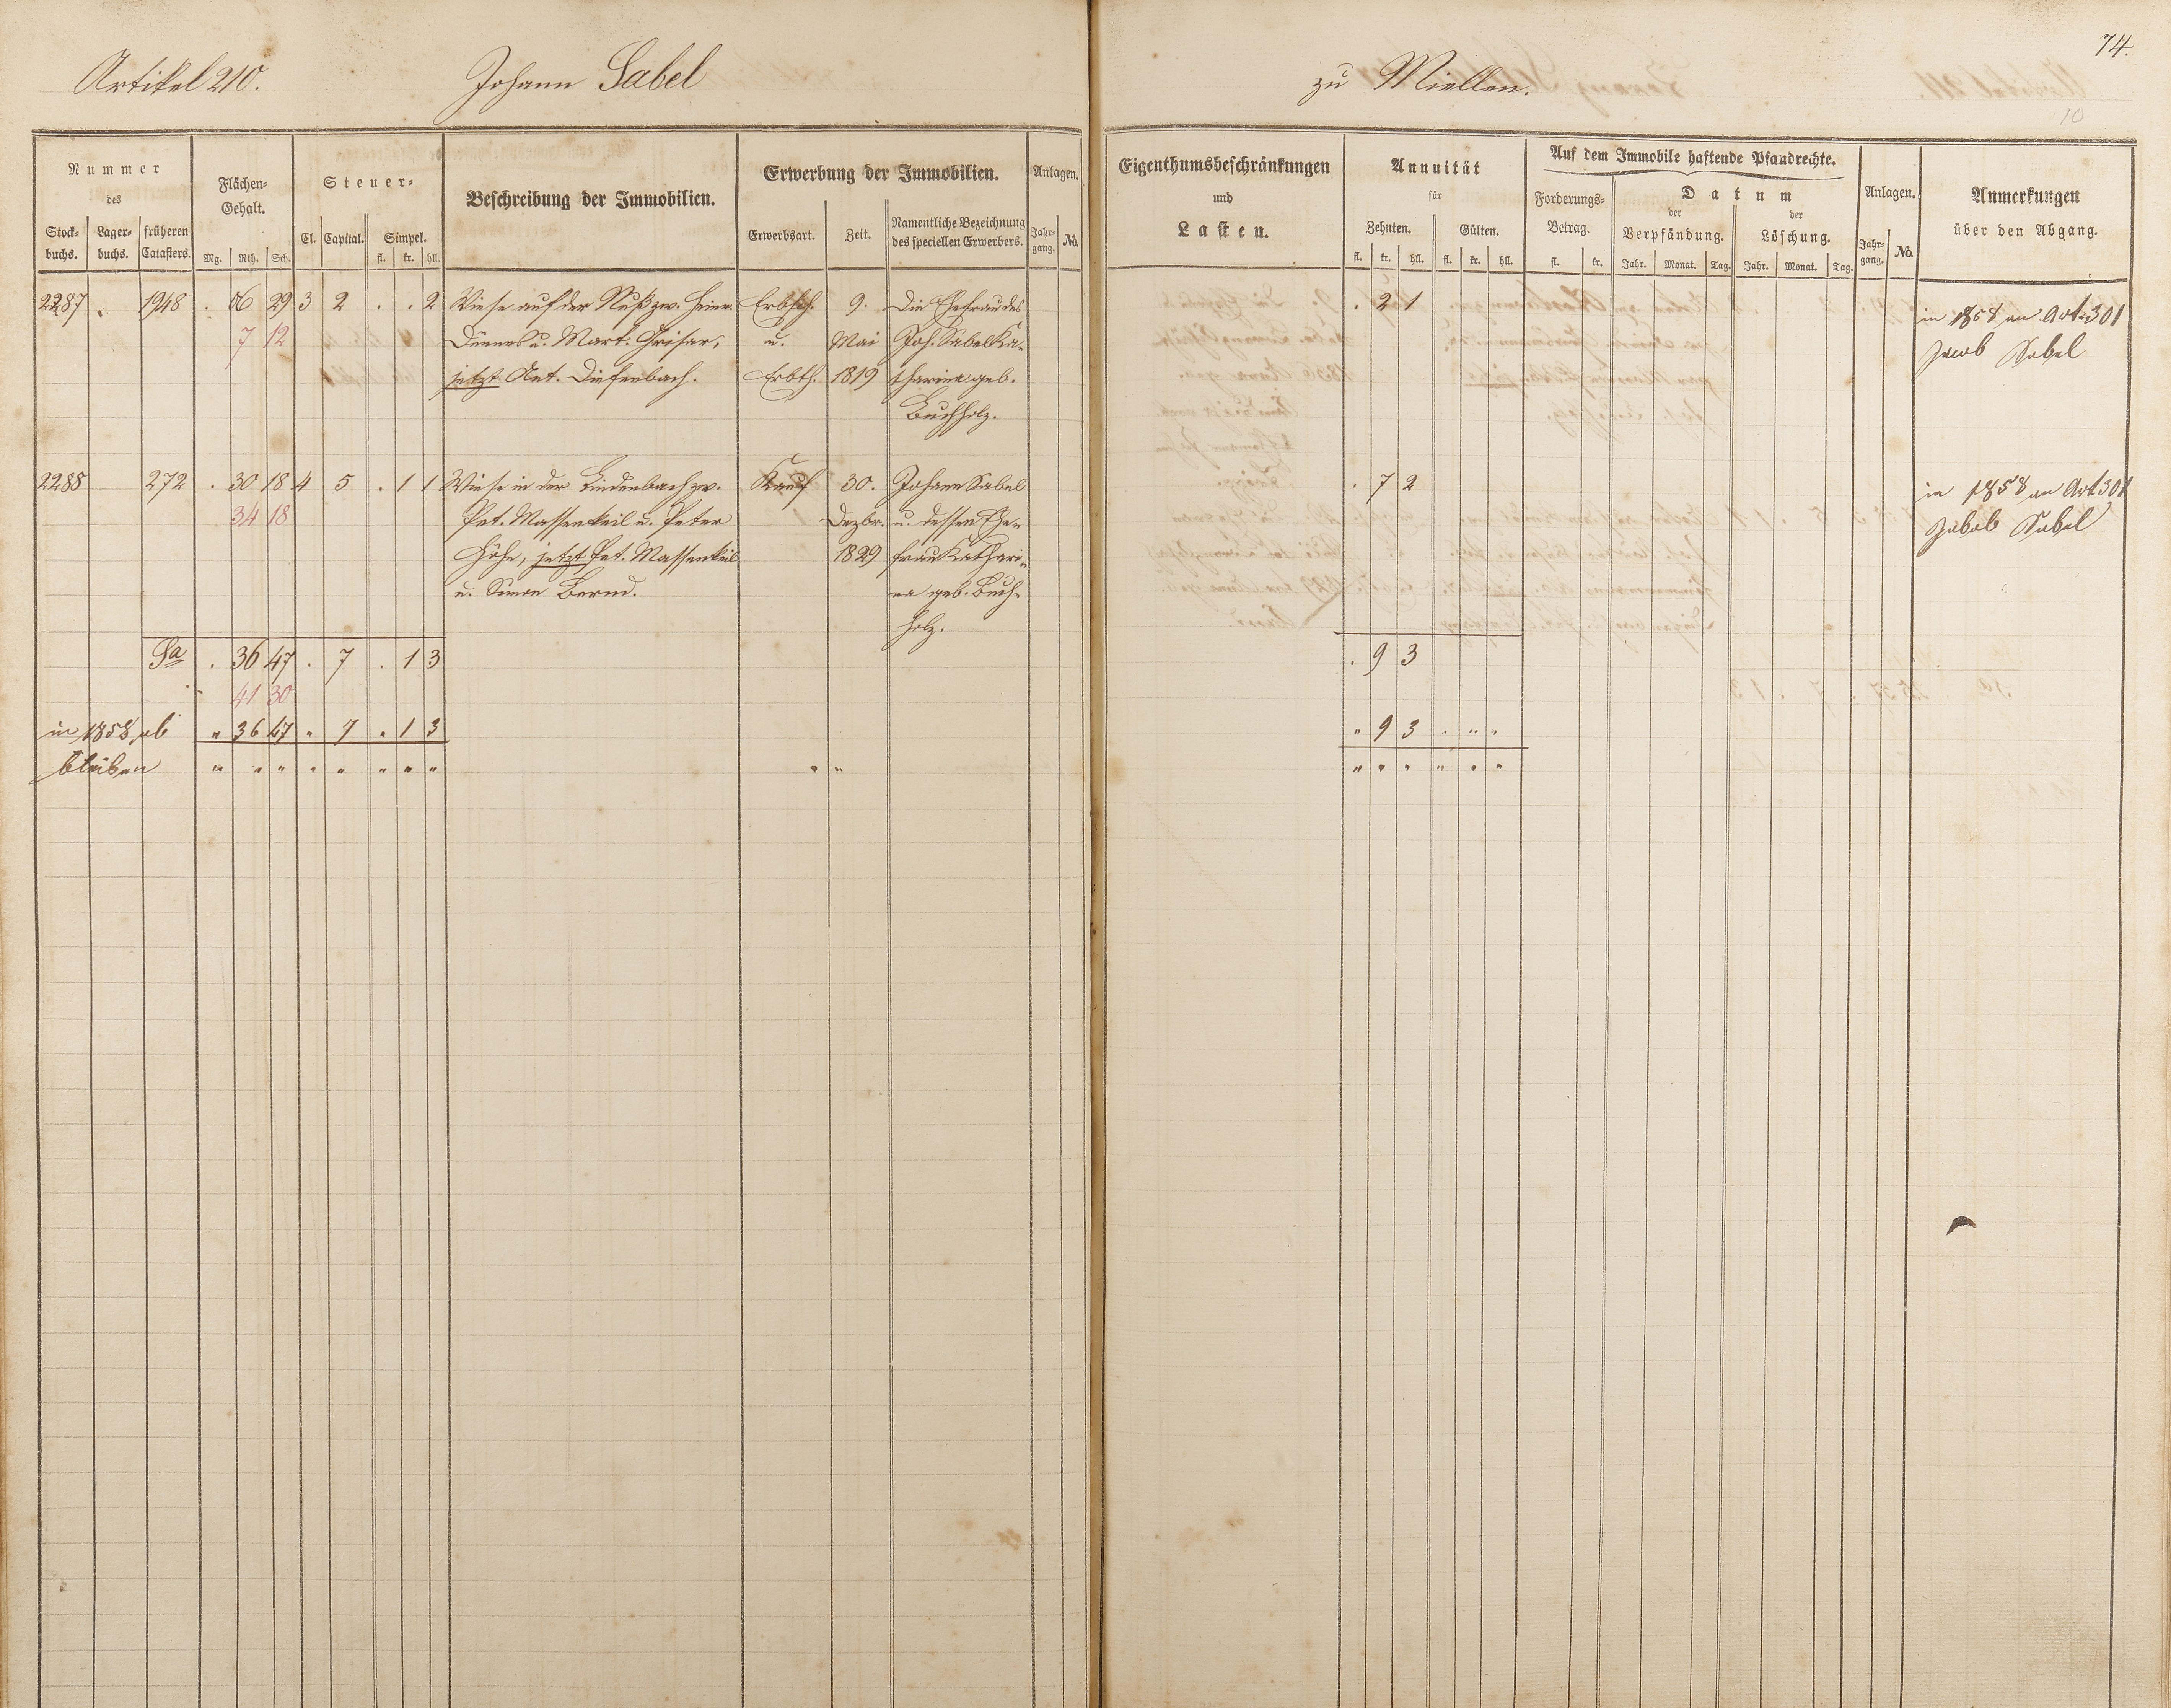 74.
Artikel 210. Johann Sabel zu Miellen.
10
Nummer
des
Stock-
buchs.
Lager-
buchs.
früheren
Catasters.
Flächen-
Gehalt.
Mg. Rth. Sch.
Steuer-
Cl. Capital. Simpel.
fl. kr. hll.
Beschreibung der Immobilien.
Erwerbung der Immobilien.
Erwerbsart. Zeit.
Namentliche Bezeichnung
des speciellen Erwerbers.
Anlagen.
Jahr-
gang. No.
Eigenthumsbeschränkungen
und
Lasten.
Annuität
für
Zehnten. Gülten.
fl. kr. hll. fl. kr. hll.
Auf dem Immobile haftende Pfandrechte.
Forderungs-
Betrag.
fl. kr.
Datum
der der
Verpfändung. Löschung.
Jahr. Monat. Tag. Jahr. Monat. Tag.
Anlagen.
Jahr-
gang. No.
Anmerkungen
über den Abgang.
2287 . 1948 . 06 29 3 2 . . 2 Wiese auf der Nuß zw. Heinr. Erbsch. 9. Die Ehefrau des . 2 1 in 1858 an Art. 301
7 12 u. Mart. Grisar, u. Mai Joh. Sabel Ka- Jacob Sabel
jetzt Ant. Diefenbach. Erbth. 1819 tharina geb.
Buchholz.
2288 272 . 30 18 4 5 . 1 1 Wiese in der Lindenbach zw. Kauf 30. Johann Sabel . 7 2 in 1858 an Art 301
34 18 Pet. Massenkeil u. Peter Dezbr. u. dessen Ehe- Jakob Sabel
Höhn, jetzt Pet. Massenkeil 1829 frau Kathari-
u. Simon Bernd. na geb. Buch-
holz.
Sa . 36 47 . 7 . 1 3 . 9 3
41 30
in 1858 ab " 36 47 " 7 " 1 3 " 9 3 " " "
bleiben " " " " " " " " " " " " " " "